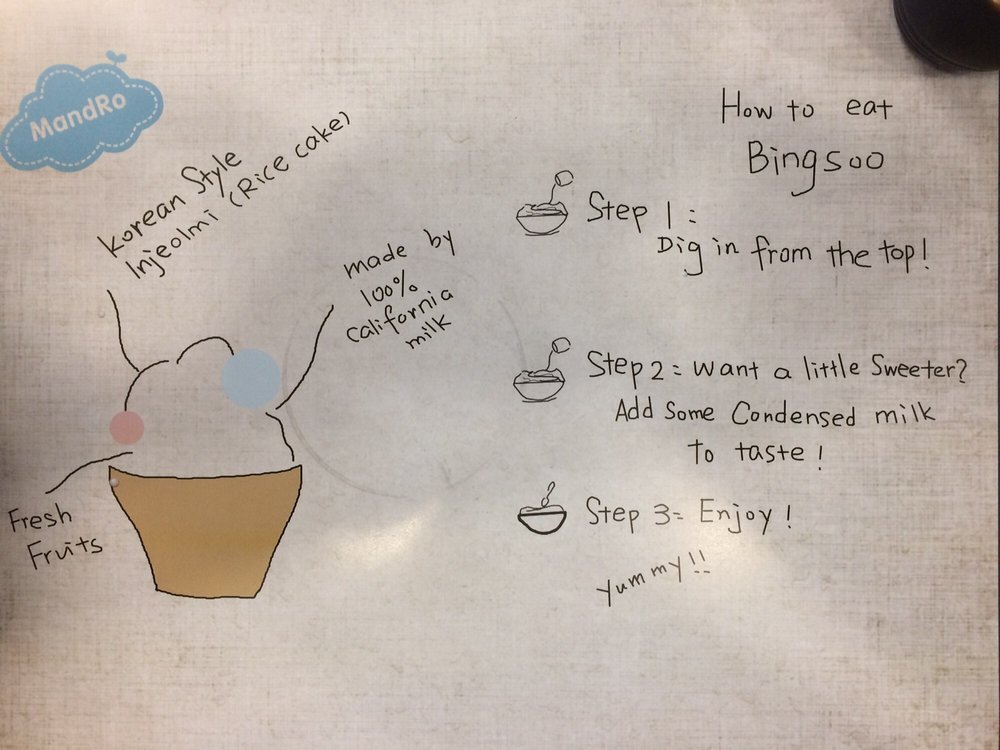 MandRo
Korean Style
Injeolmi (Rice cake)
made by
100%
california
milk
Fresh
Fruits
How to eat
Bingsoo
Step 1:
Dig in from the top!
Step 2: Want a little Sweeter?
Add Some Condensed milk
To taste!
Step 3: Enjoy!
Yummy!!